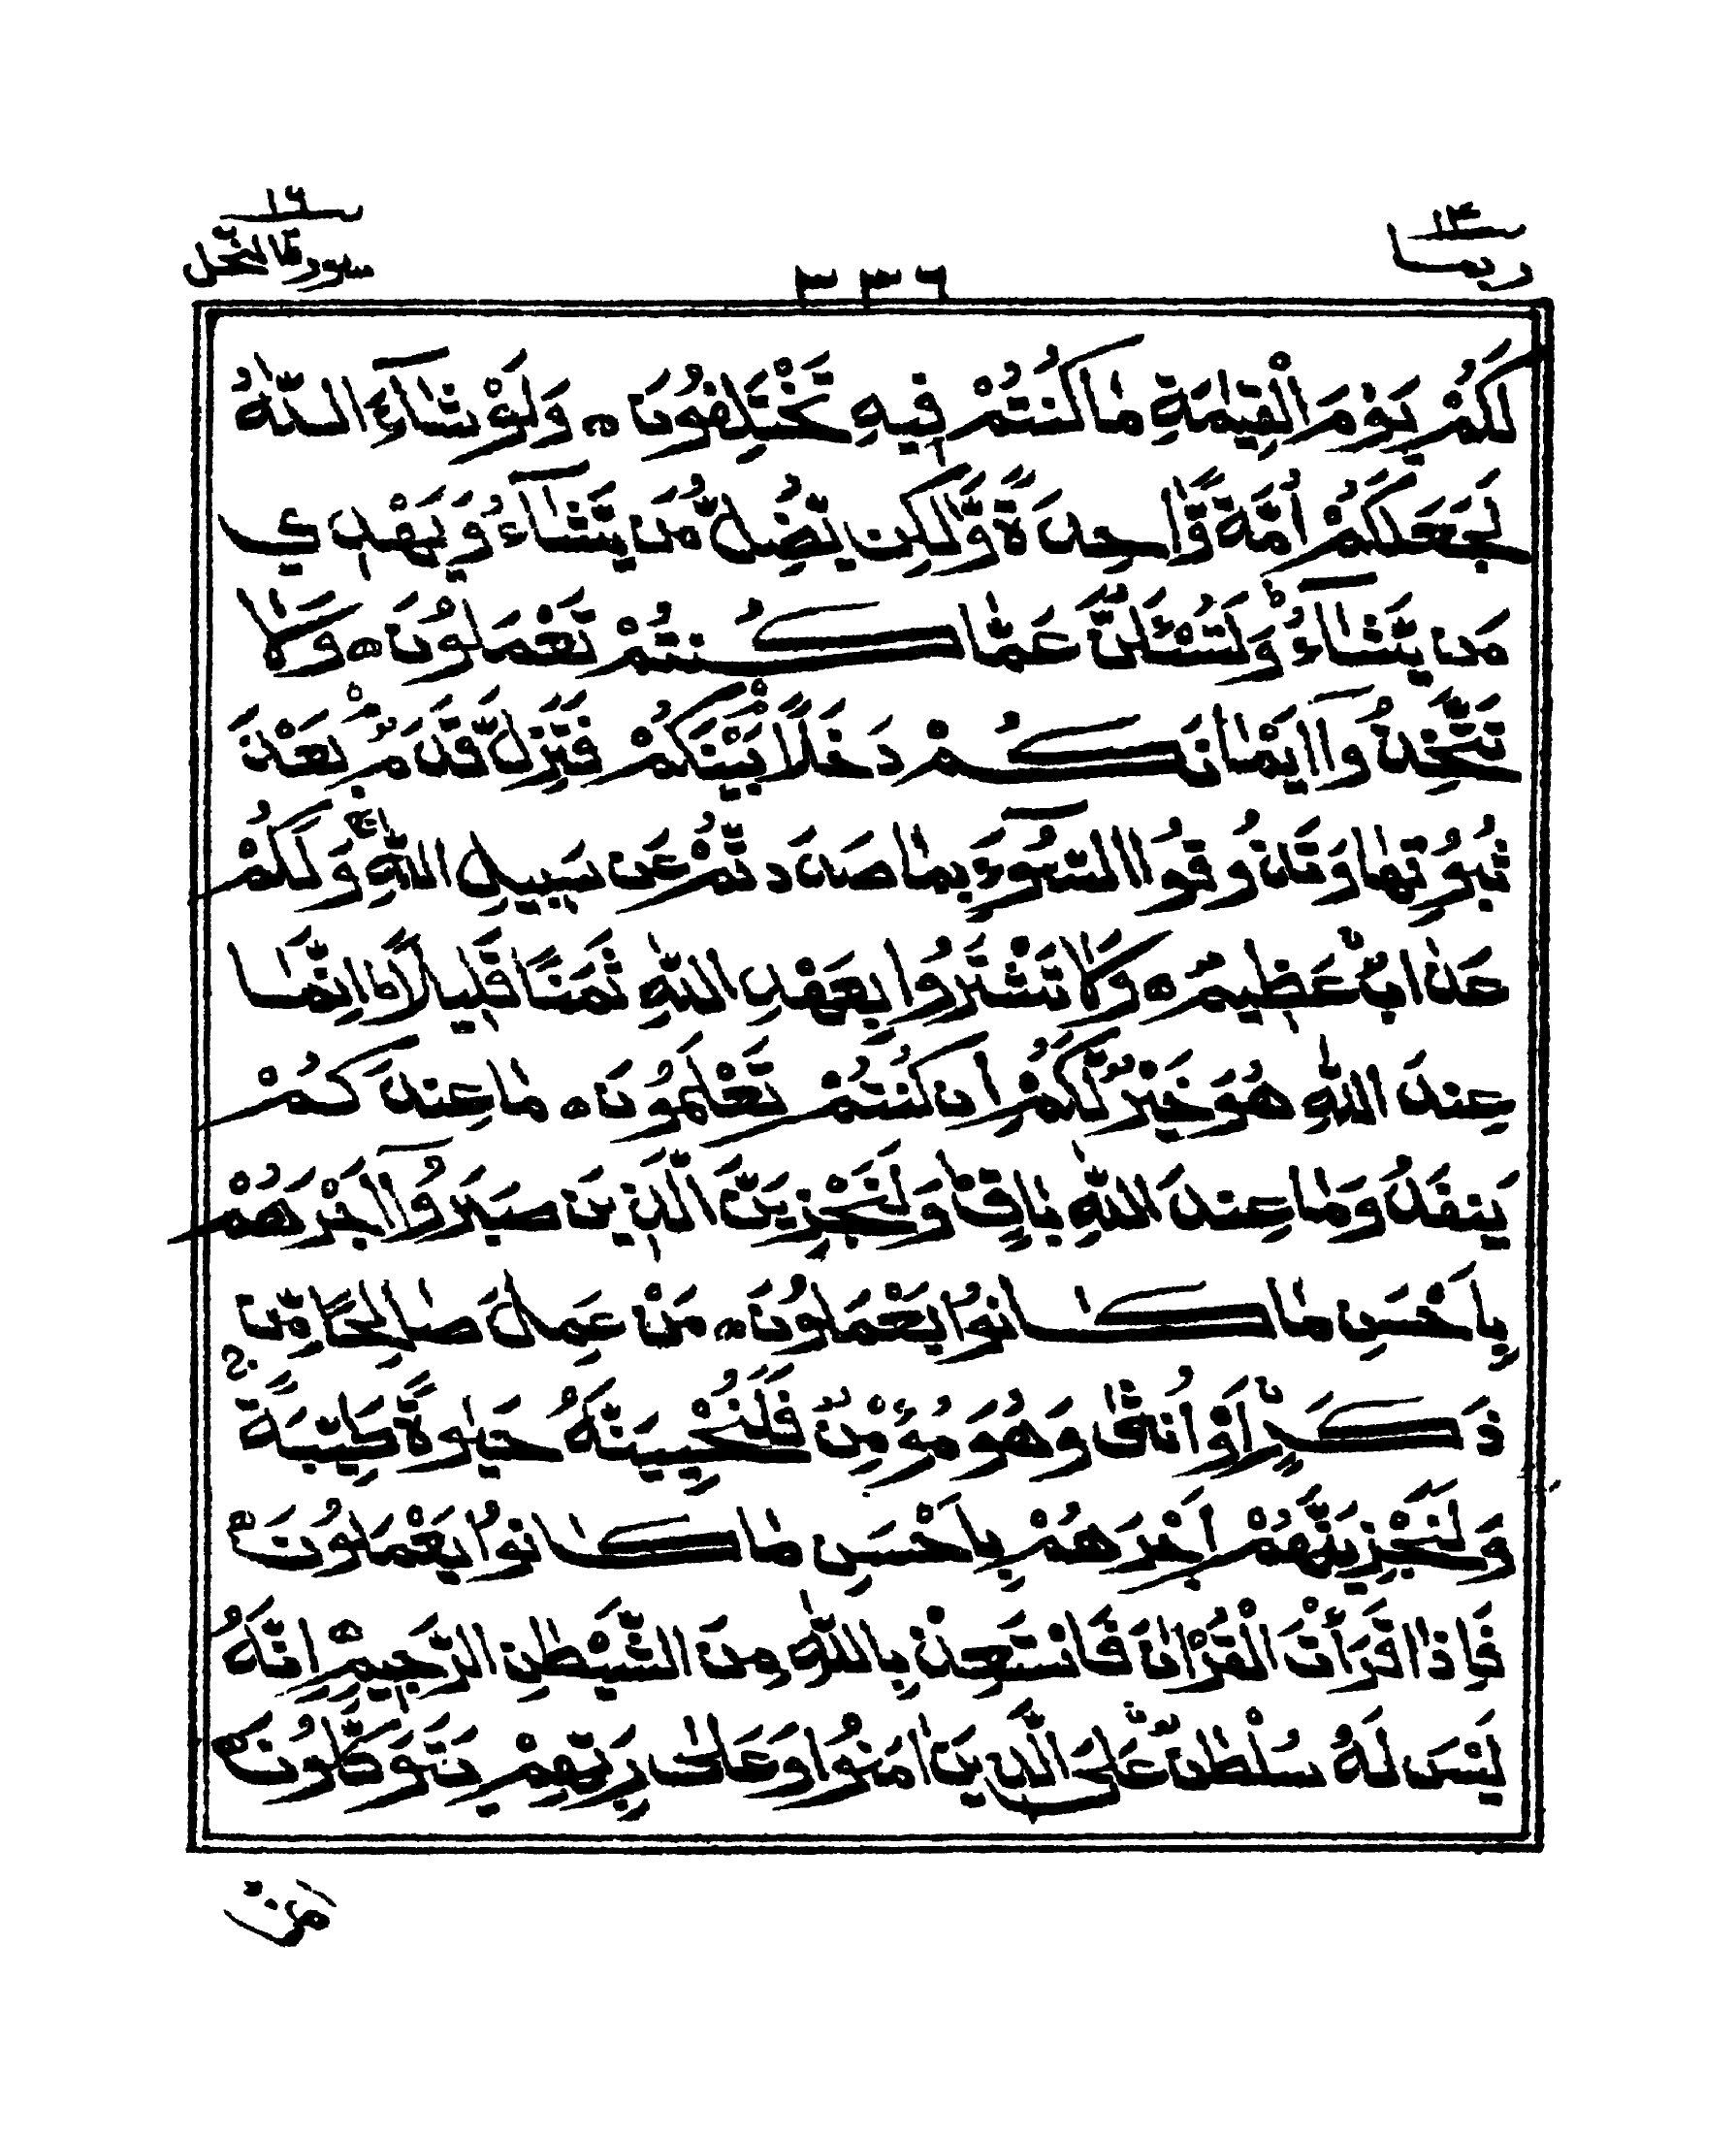 ربما ١٤
٣٣٦
سورة النحل ١٦
لَكُمْ يَوْمَ الْقِيٰمَةِ مَا كُنْتُمْ فِيهِ تَخْتَلِفُونَ ۝ وَلَوْ شَآءَ اللّٰهُ
لَجَعَلَكُمْ اُمَّةً وَّاحِدَةً وَّلٰكِن يُّضِلُّ مَن يَّشَآءُ وَيَهْدِي
مَن يَّشَآءُ ؕ وَلَتُسْـَٔلُنَّ عَمَّا كُنتُمْ تَعْمَلُونَ ۝ وَلَا
تَتَّخِذُوٓا اَيْمَانَكُمْ دَخَلًاۢ بَيْنَكُمْ فَتَزِلَّ قَدَمٌۢ بَعْدَ
ثُبُوتِهَا وَتَذُوقُوا السُّوٓءَ بِمَا صَدَدتُّمْ عَن سَبِيلِ اللّٰهِ ۚ وَلَكُمْ
عَذَابٌ عَظِيمٌ ۝ وَلَا تَشْتَرُوا بِعَهْدِ اللّٰهِ ثَمَنًا قَلِيلًا ؕ اِنَّمَا
عِندَ اللّٰهِ هُوَ خَيْرٌ لَّكُمْ اِن كُنتُمْ تَعْلَمُونَ ۝ مَا عِندَكُمْ
يَنفَدُ وَمَا عِندَ اللّٰهِ بَاقٍ ؕ وَلَنَجْزِيَنَّ الَّذِينَ صَبَرُوٓا اَجْرَهُمْ
بِاَحْسَنِ مَا كَانُوا يَعْمَلُونَ ۝ مَنْ عَمِلَ صَالِحًا مِّن
ذَكَرٍ اَوْ اُنثٰى وَهُوَ مُؤْمِنٌ فَلَنُحْيِيَنَّهُ حَيٰوةً طَيِّبَةً ۚ
وَلَنَجْزِيَنَّهُمْ اَجْرَهُمْ بِاَحْسَنِ مَا كَانُوا يَعْمَلُونَ ۝
فَاِذَا قَرَأْتَ الْقُرْاٰنَ فَاسْتَعِذْ بِاللّٰهِ مِنَ الشَّيْطٰنِ الرَّجِيمِ ۝ اِنَّهُ
لَيْسَ لَهُ سُلْطٰنٌ عَلَى الَّذِينَ اٰمَنُوا وَعَلٰى رَبِّهِمْ يَتَوَكَّلُونَ ۝